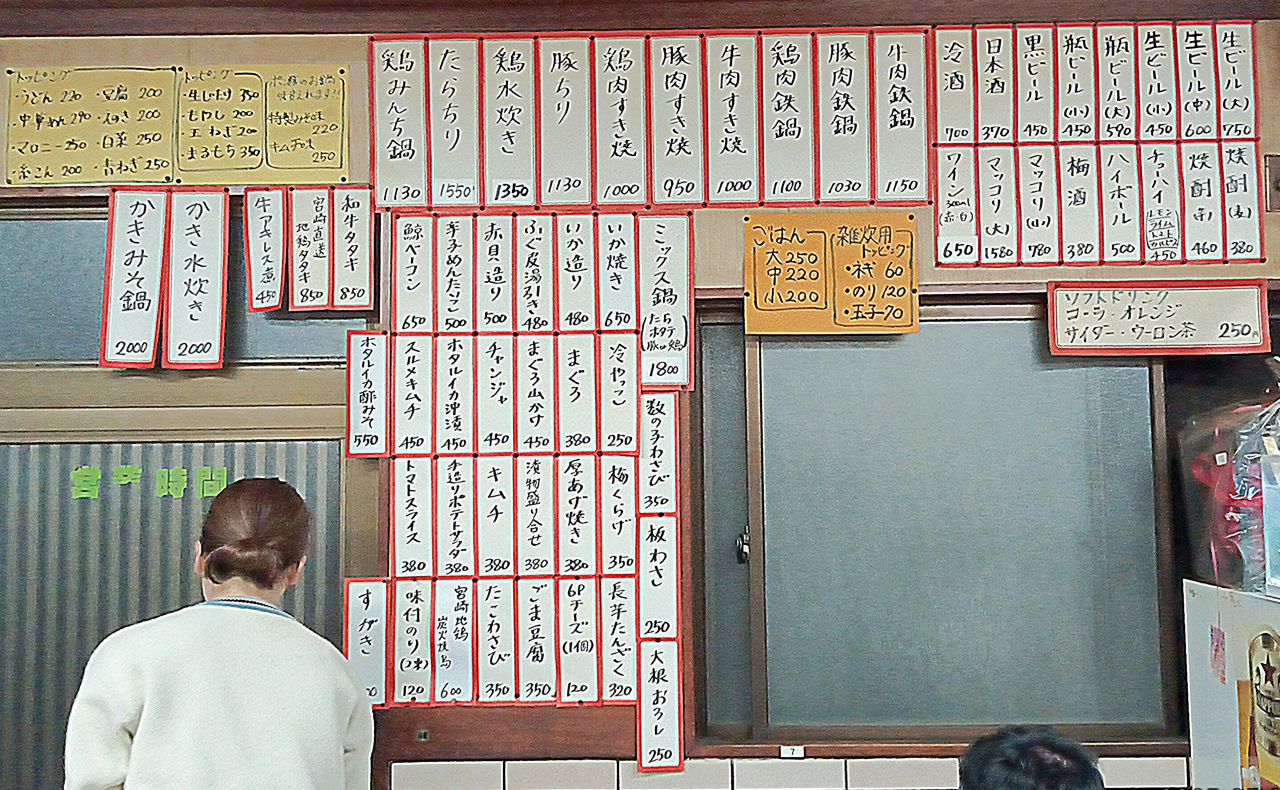 トッピング
・うどん 220
・豆腐 200
・中華めん 290
・ねぎ 200
・マロニー 250
・白菜 250
・糸こん 200
・青ねぎ 250
トッピング
・生しいたけ 350
・もやし 200
・玉ねぎ 200
・まるもち 350
味変えれます!!
特製みそ味
220
キムチ味
250
鶏みんち鍋 1130
たらちり 1550
鶏水炊き 1350
豚ちり 1130
鶏肉すき焼 1000
豚肉すき焼 950
牛肉すき焼 1000
鶏肉鉄鍋 1100
豚肉鉄鍋 1030
牛肉鉄鍋 1150
冷酒 700
日本酒 370
黒ビール 450
瓶ビール(小) 450
瓶ビール(大) 590
生ビール(小) 450
生ビール(中) 600
生ビール(大) 750
ワイン 300ml (赤・白) 650
マッコリ(大) 1580
マッコリ(小) 780
梅酒 380
ハイボール 500
チューハイ レモン ライム トマト カルピス 450
焼酎(芋) 460
焼酎(麦) 380
かきみそ鍋 2000
かき水炊き 2000
牛アキレス煮 450
宮崎直送 地鶏タタキ 850
和牛タタキ 850
鯨ベーコン 650
辛子めんたいこ 500
赤貝造り 500
ふぐ皮湯引き 480
いか造り 480
いか焼き 650
ミックス鍋 (たら ホタテ 豚or鶏) 1800
ごはん
大 250
中 220
小 200
雑炊用
トッピング
・ネギ 60
・のり 120
・玉子 70
ソフトドリンク
コーラ・オレンジ
サイダー・ウーロン茶 250円
ホタルイカ酢みそ 550
スルメキムチ 450
ホタルイカ沖漬 450
チャンジャ 450
まぐろ山かけ 450
まぐろ 380
冷やっこ 250
数の子わさび 350
トマトスライス 380
手造りポテトサラダ 380
キムチ 380
漬物盛り合せ 380
厚あげ焼き 380
梅くらげ 350
板わさ 250
すがき
味付のり(2束) 120
宮崎地鶏 炭火焼鳥 600
たこわさび 350
ごま豆腐 350
6Pチーズ(1個) 120
長芋たんざく 320
大根おろし 250
時間
7